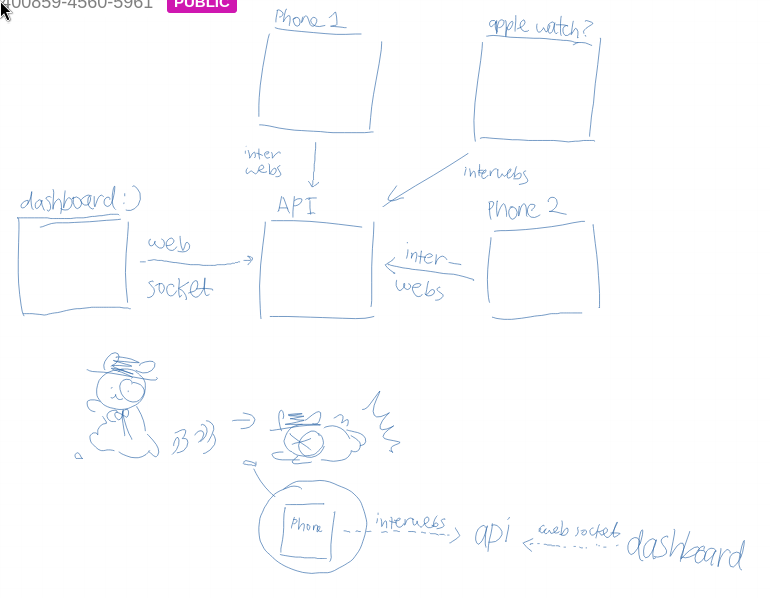 400859-4560-5961 PUBLIC
Phone 1
apple watch?
inter
webs
interwebs
dashboard :)
API
Phone 2
web
socket
inter-
webs
Phone
interwebs
api
web socket
dashboard